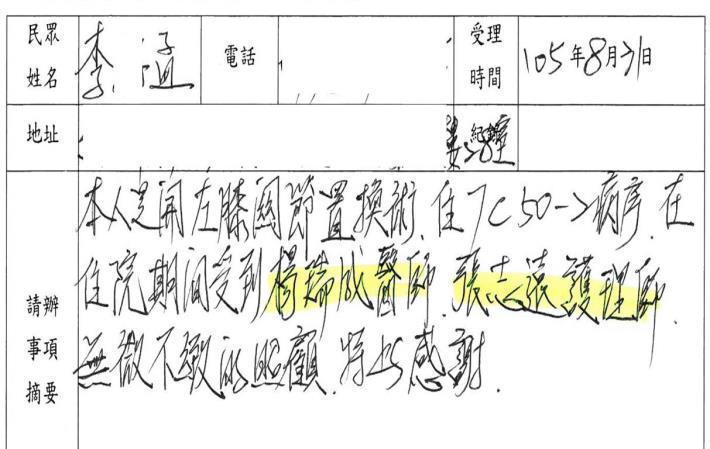 民眾姓名 李 電話 受理時間 105年8月31日
地址
請辦事項摘要
本人是開左膝關節置換術,住7C50-2病床.在
住院期間受到楊瑞成醫師.張志遠護理師.
無微不致的照顧.特此感謝.